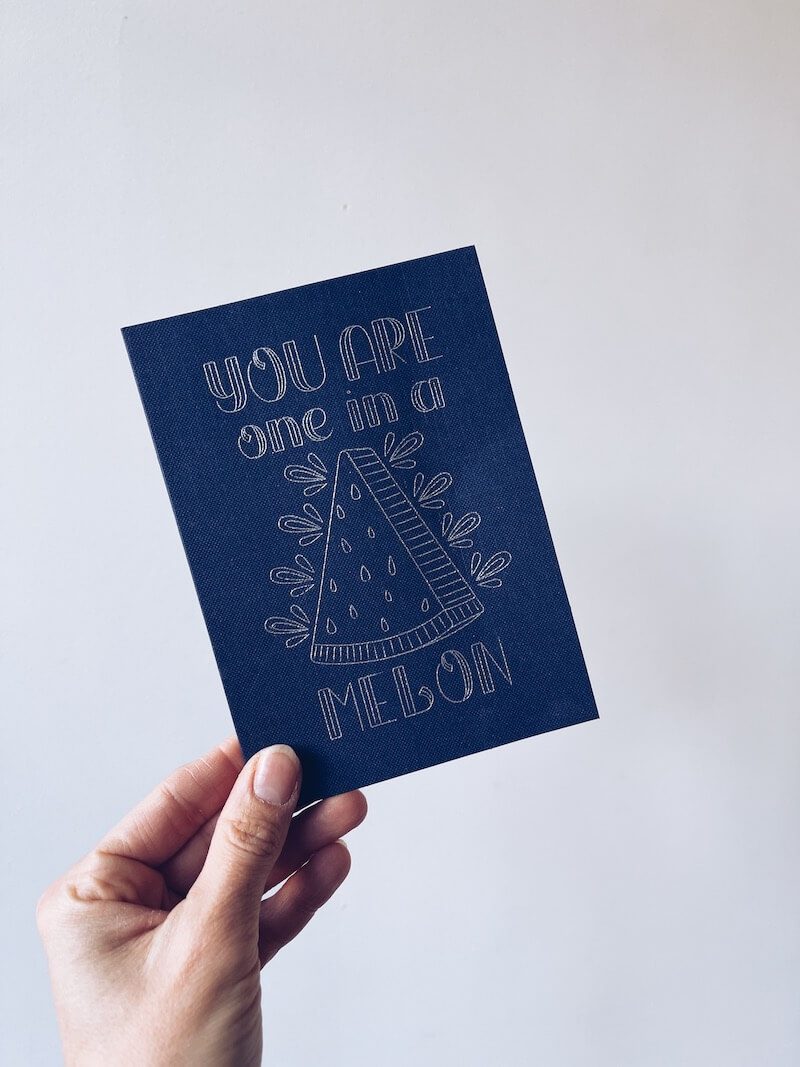 YOU ARE
one in a
MELON